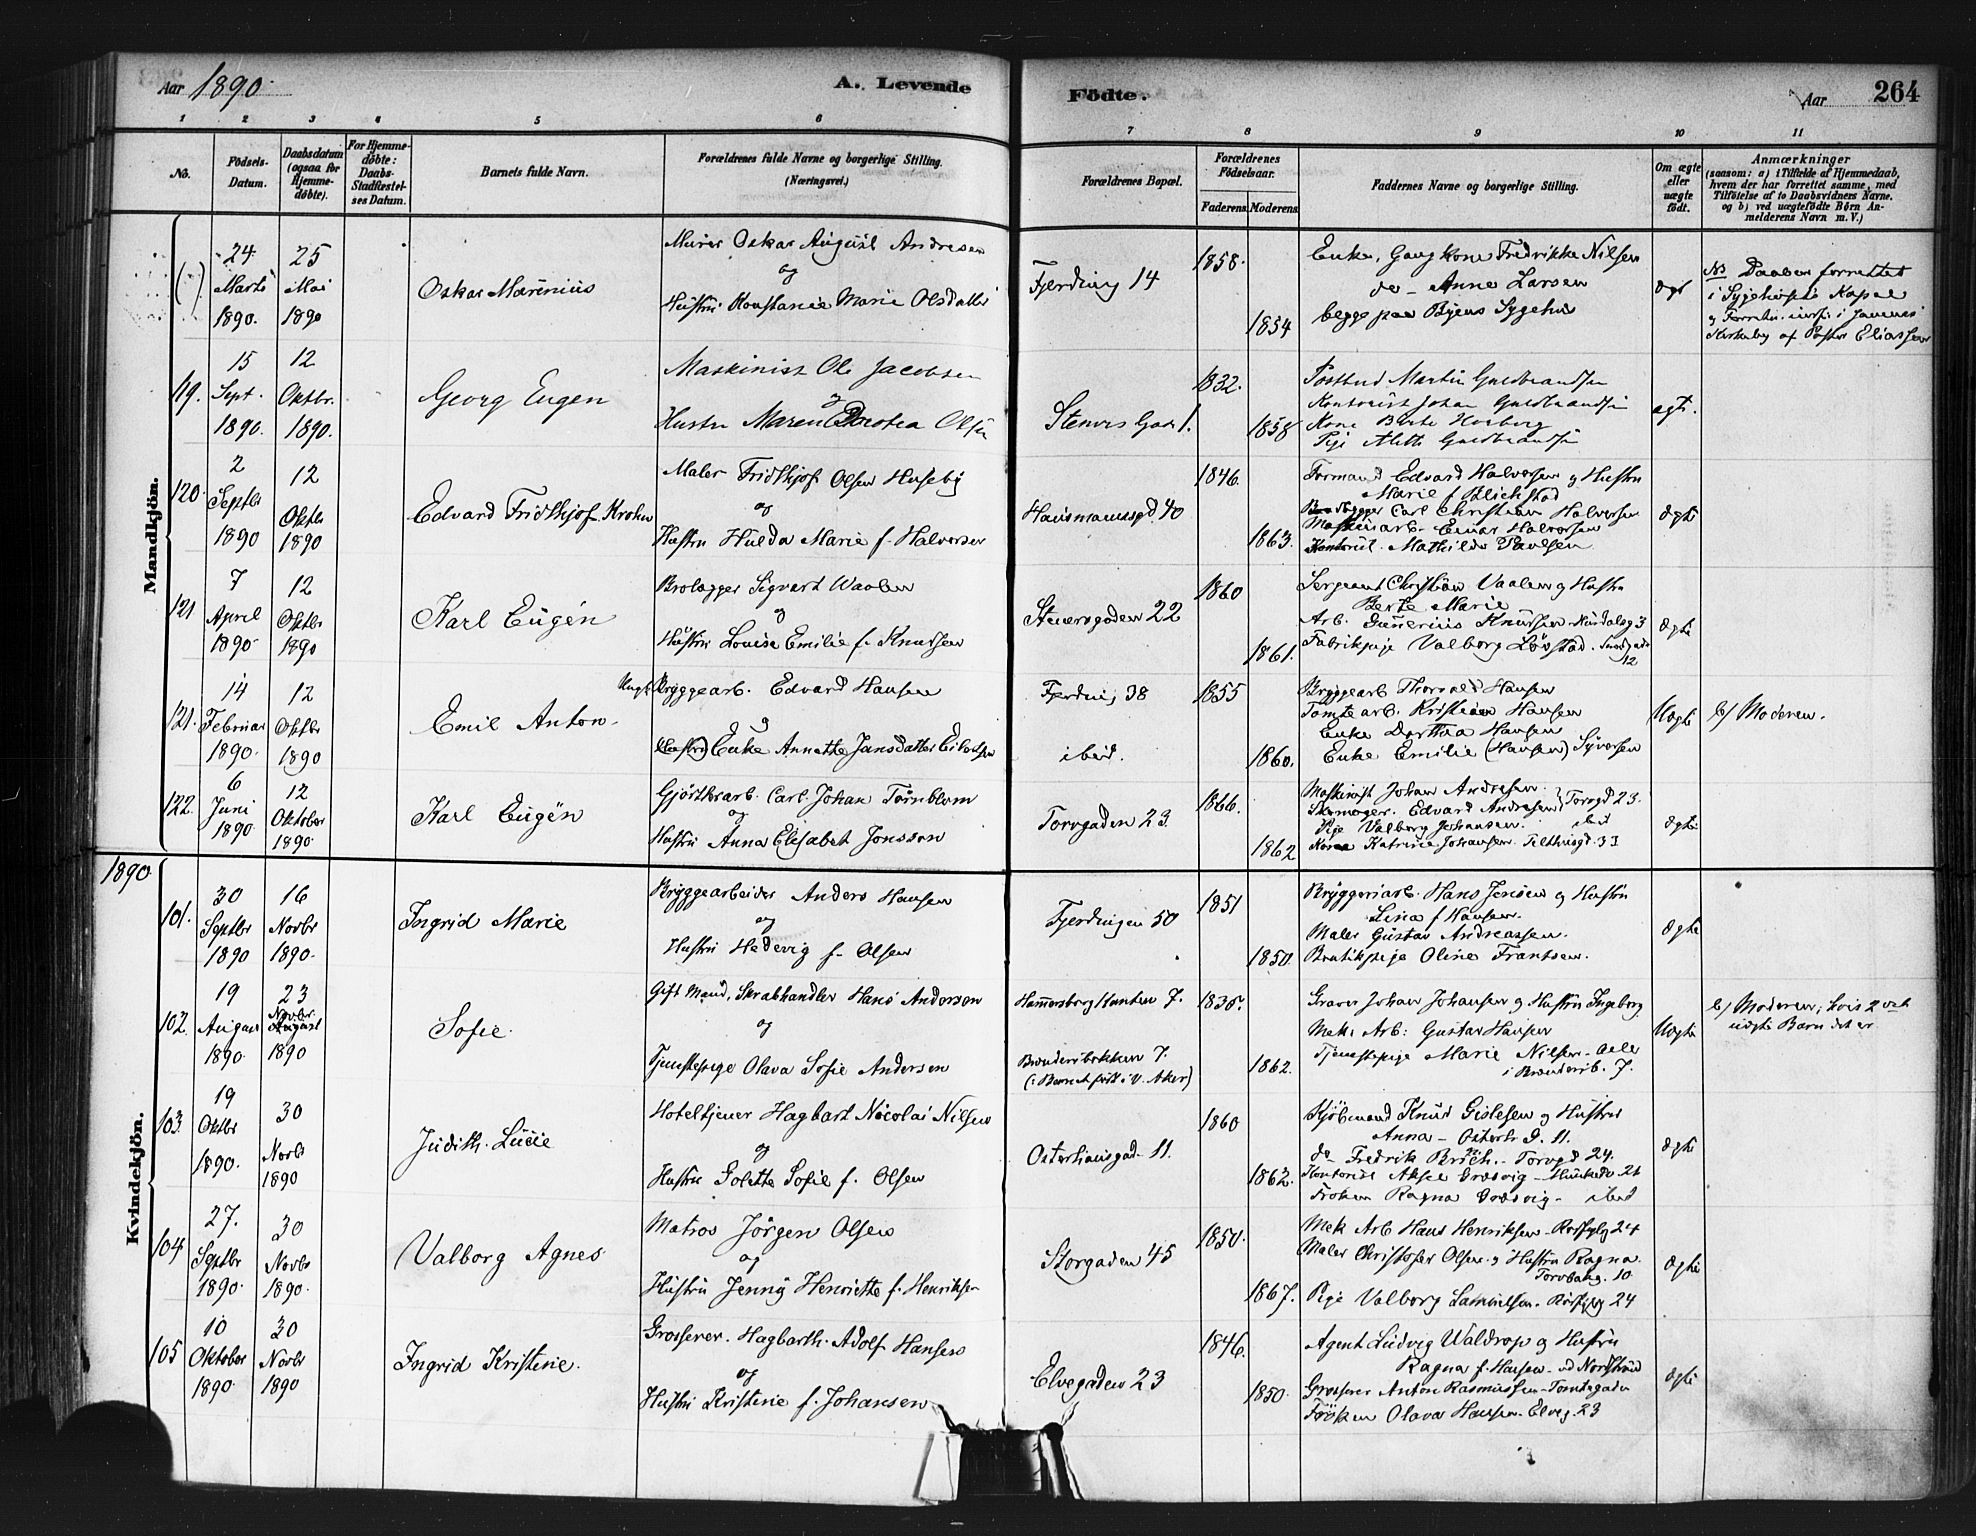 Aar 1890.
A. Levende
Födte.
Aar
264
1 2 3 4 5 6 7 8 9 10 11
No.
Födsels-Datum.
Daabsdatum (ogsaa for Hjemme-döbte).
For Hjemme-döbte: Daabs-Stadfæstel-ses Datum.
Barnets fulde Navn.
Forældrenes fulde Navne og borgerlige Stilling. (Næringsvei.)
Forældrenes Bopæl.
Forældrenes Födselsaar.
Faderens. Moderens.
Faddernes Navne og borgerlige Stilling.
Om ægte eller uægte födt.
Anmærkninger
(saasom: a) i Tilfælde af Hjemmedaab, hvem der har forrettet samme, med Tilföielse af to Daabsvidners Navne, og b) ved uægtefödte Börn An-melderens Navn m. V.)
Mandkjön.
24 Marts 1890.
25 Mai 1890
Oskar Marinius
Murer Oskar August Andresen
og
Hustru Konstance Marie Olsdatter
Fjerding 14
1858.
1854
Enke, Gangkone Fredrikke Nilsen
do - Anne Larsen
begge paa Byens Sygehus
ægt
NB Daaben forrettet
i Sygehusets Kapel
af Pastor Eliassen
119.
15 Sept. 1890.
12 Oktbr. 1890.
Georg Eugen
Maskinist Ole Jacobsen
og
Hustru Maren Dorotea Olsen
Steners Gade 1.
1832.
1858
Postbud Martin Guldbrandsen
Kontorist Johan Guldbrandsen
Kone Berte Horberg
Pige Alette Guldbrandsen
ægte.
120.
2 Septbr 1890
12 Oktbr 1890
Edvard Fridthjof Krohn
Maler Fridthjof Olsen Huseby
og
Hustru Hulda Marie f. Halvorsen
Hausmannsgd 40
1846.
1863.
Formand Edvard Halvorsen og Hustru
Marie f Blichstad
Carl Christian Halvorsen
Maskinarb. Einar Halvorsen
Mathilde Paulsen
ægte
121
7 April 1890.
12 Oktbr 1890
Karl Eugén
Brolægger Sigvart Waalen
og
Hustru Louise Emilie f. Knudsen
Stenersgaden 22
1860
1861.
Sergeant Christian Vaalen og Hustru
Berte Marie
Arb. Gunerius Knudsen Nordalsg 3
Fabrikpige Valborg Løvstad.
12
ægte
121.
14 Februar 1890.
12 Oktbr 1890
Emil Anton
Ungk. Bryggearb. Edvard Hansen
og
(Hustru) Enke Annette Jansdatter Eilertsen
Fjerding 38
ibid.
1855
1860.
Bryggearb Thorvald Hansen
Tomtearb. Kristian Hansen
Enke Dorthea Hansen
Enke Emilie (Hansen) Syversen
Uægte
b/ Moderen.
122.
6 Juni 1890
12 Oktober 1890
Karl Eugén
Gjørtlerarb. Carl Johan Törnblom
og
Hustru Anna Elisabet Jonsson
Torvgaden 23
1866.
1862
Maskinist Johan Andresen
Skomager. Edvard Andresen Torvgd 23.
Pige Valborg Johansen. ibid
Kone Katrine Johansen. Telthusgd. 33
ægte.
1890
Kvindekjön.
101.
30 Septbr 1890
16 Novbr 1890.
Ingrid Marie
Bryggearbeider Anders Hansen
og
Hustru Hedevig f. Olsen
Fjerdingen 50
1851
1850.
Bryggeriarb. Hans Jensen og Hustru
Lina f Hansen.
Maler Gustav Andreassen.
Butikspige Oline Frantsen.
ægte
102.
19 August 1890.
23 Novbr August 1890
Sofie.
Gift Mand, Skrabhandler Hans Andersen
og
Tjenstepige Olava Sofie Andersen
Hammersborg 7.
7.
(: Barnet født i V. Aker)
1835.
1862.
Graver Johan Johansen og Hustru Ingeborg
Mek. Arb: Gustav Hansen
Tjenstepige Marie Nilsen
7.
Uægte
b/ Moderen; hvis 2det
uægte Barn det er
103.
19 Oktbr 1890.
30 Novbr 1890
Judith. Lucie
Hoteltjener Hagbart Nicolai Nilsen
og
Hustru Golette Sofie f. Olsen
Osterhausgad. 11.
1860
1862.
Kjøbmand Knud Gislesen og Hustru
Anna - Osterh. d. 11.
do Fredrik Torvgd 24.
Kontorist Aksel Græsvig - Munkeda 21
Frøken Ragna Græsvig - ibid
ægte
104
27. Septbr 1890.
30 Novbr 1890.
Valborg Agnes
Matros Jørgen Olsen
og
Hustru Jenny Henriette f. Henriksen
Storgaden 45
1850.
1867.
Mek Arb Hans Henriksen 24
Maler Christofer Olsen og Hustru Ragna.
Torvbakg. 10
Pige Valborg Samuelsen 24
ægte
105
10 Oktober 1890
30 Novbr 1890
Ingrid Kristine.
Grosserer. Hagbarth. Adolf Hansen
og
Hustru Kristine f. Johansen
Elvegaden 23
1846.
1850.
Agent Ludvig Waldrop og Hustru
Ragna f. Hansen - ved Nordstrand
Grosserer Anton Rasmussen - Tomtegaden
Frøken Olava Hansen. Elveg. 23
ægte